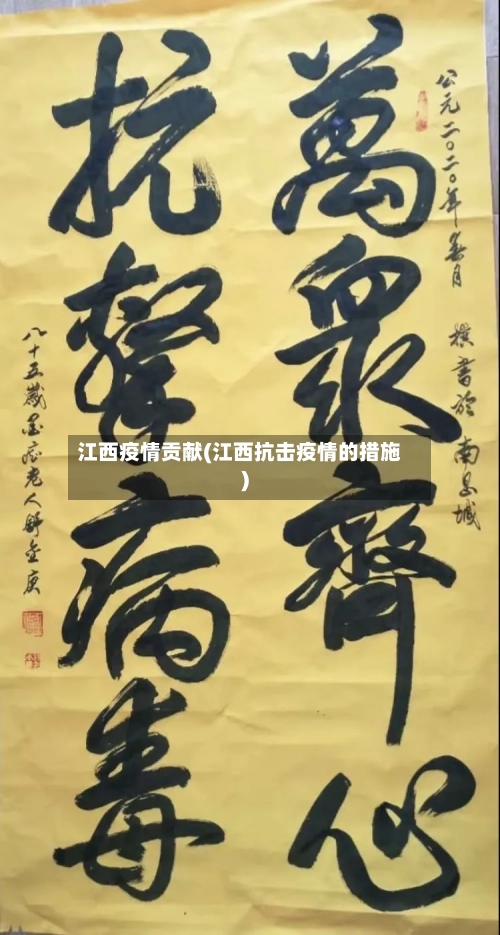 公元二〇二〇年春月 書於南昌城
萬眾齊心
抗擊病毒
八十五歲墨老人舒金庚
江西疫情贡献(江西抗击疫情的措施
)